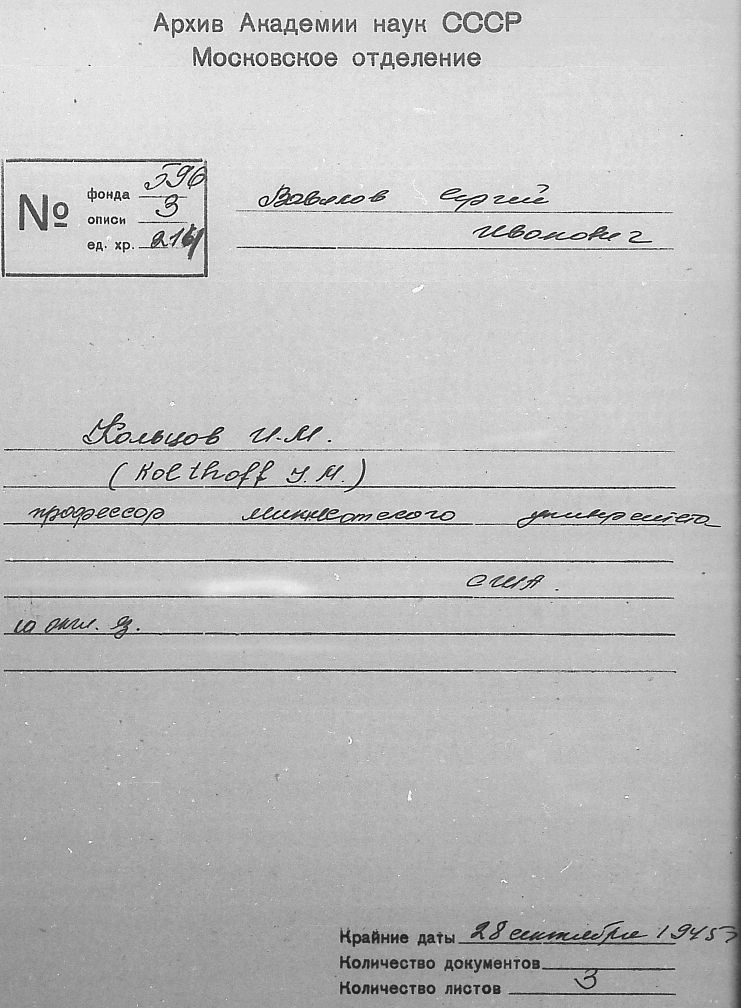 Архив Академии наук СССР
Московское отделение
№
фонда 596
описи 3
ед. хр.
Вавилов Сергей
Иванович
Кольцов И.М.
(Kolthoff I.M.)
профессор миннесотского университета
США.
на англ. яз.
Крайние даты 28 сентября 1945
Количество документов
Количество листов 3